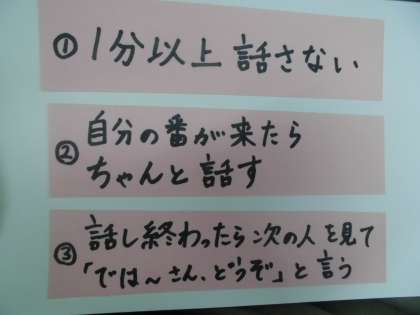 ① 1分以上話さない
② 自分の番が来たら
ちゃんと話す
③ 話し終わったら次の人を見て
「では〜さん、どうぞ」と言う